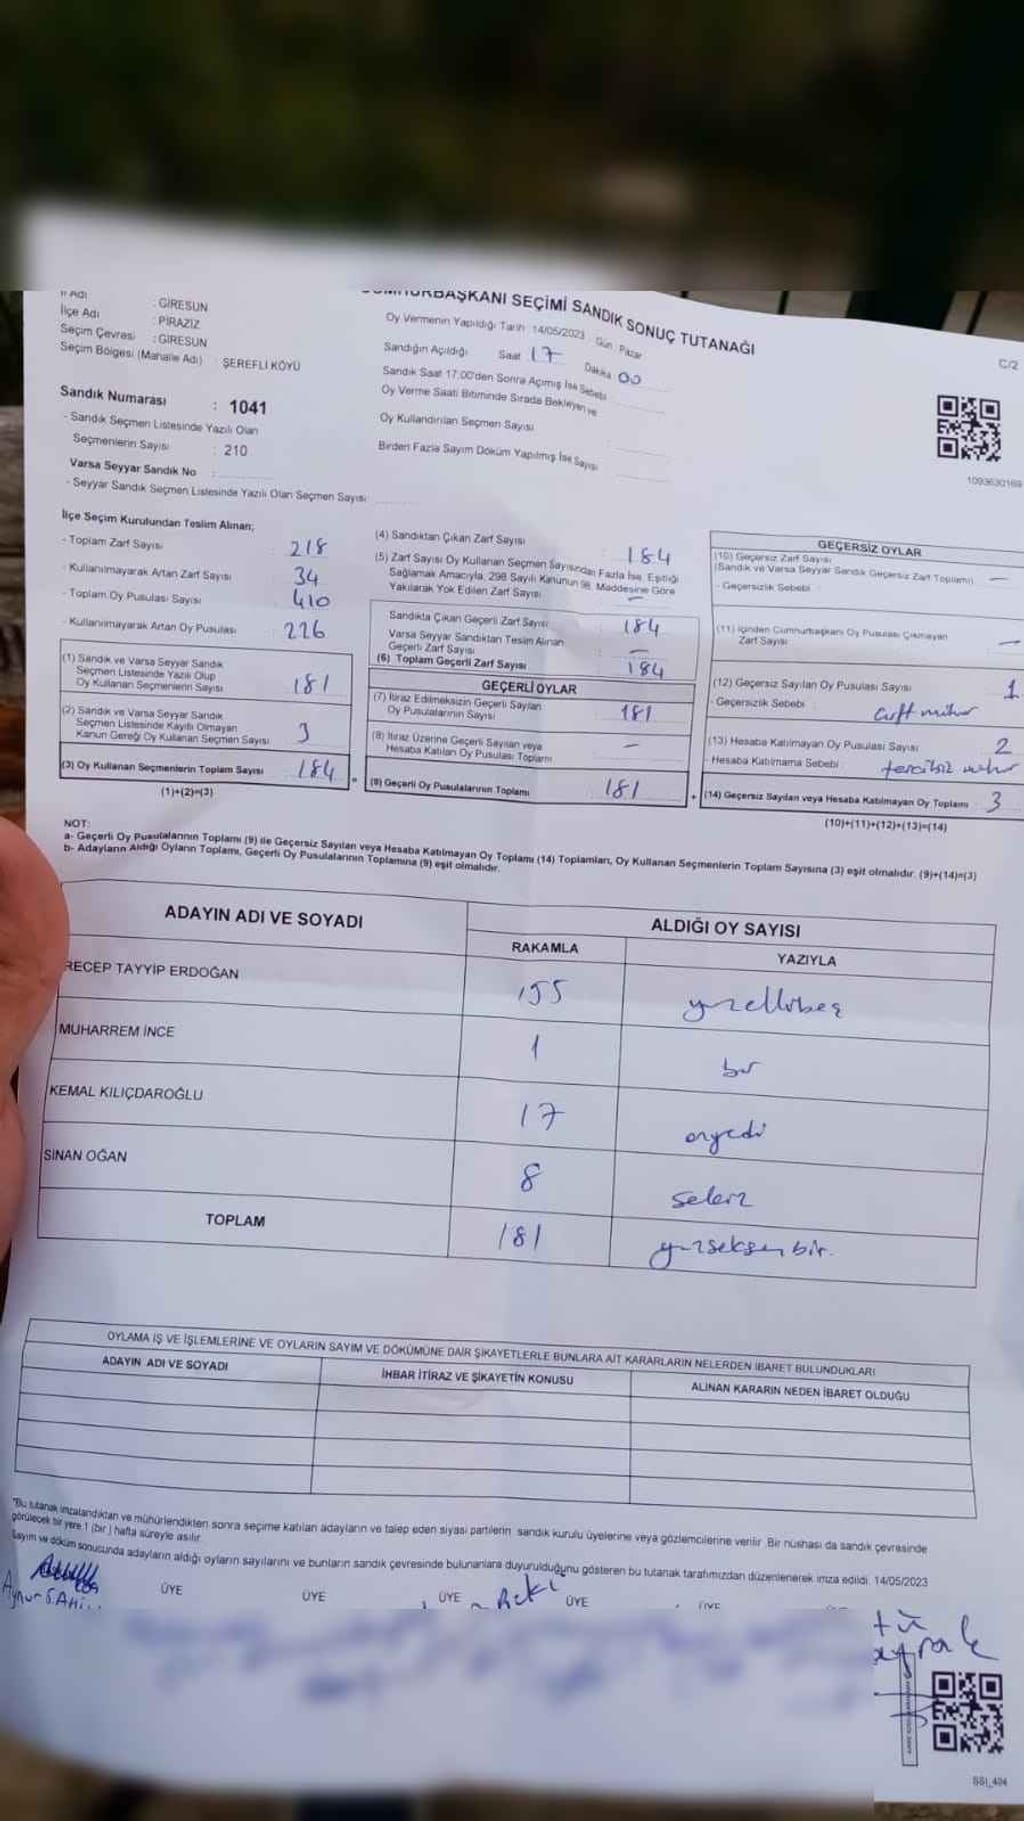 İl Adı : GİRESUN
İlçe Adı : PİRAZİZ
Seçim Çevresi : GİRESUN
Seçim Bölgesi (Mahalle Adı) : ŞEREFLİ KÖYÜ
CUMHURBAŞKANI SEÇİMİ SANDIK SONUÇ TUTANAĞI
Oy Vermenin Yapıldığı Tarih : 14/05/2023 Gün : Pazar
Sandığın Açıldığı Saat 17 Dakika 00
Sandık Saat 17.00'den Sonra Açılmış İse Sebebi
Oy Verme Saati Bitiminde Sırada Bekleyen ve
Oy Kullandırılan Seçmen Sayısı
Birden Fazla Sayım Döküm Yapılmış İse Sayısı
C/2
1093630169
Sandık Numarası : 1041
- Sandık Seçmen Listesinde Yazılı Olan
Seçmenlerin Sayısı : 210
Varsa Seyyar Sandık No :
- Seyyar Sandık Seçmen Listesinde Yazılı Olan Seçmen Sayısı:
İlçe Seçim Kurulundan Teslim Alınan;
- Toplam Zarf Sayısı 218
- Kullanılmayarak Artan Zarf Sayısı 34
- Toplam Oy Pusulası Sayısı 410
- Kullanılmayarak Artan Oy Pusulası 226
(1) Sandık ve Varsa Seyyar Sandık
Seçmen Listesinde Yazılı Olup
Oy Kullanan Seçmenlerin Sayısı 181
(2) Sandık ve Varsa Seyyar Sandık
Seçmen Listesinde Kayıtlı Olmayan
Kanun Gereği Oy Kullanan Seçmen Sayısı 3
(3) Oy Kullanan Seçmenlerin Toplam Sayısı 184
(1)+(2)=(3)
(4) Sandıktan Çıkan Zarf Sayısı : 184
(5) Zarf Sayısı Oy Kullanan Seçmen Sayısından Fazla İse, Eşitliği
Sağlamak Amacıyla, 298 Sayılı Kanunun 98. Maddesine Göre
Yakılarak Yok Edilen Zarf Sayısı –
Sandıkta Çıkan Geçerli Zarf Sayısı 184
Varsa Seyyar Sandıktan Teslim Alınan
Geçerli Zarf Sayısı –
(6) Toplam Geçerli Zarf Sayısı 184
GEÇERLİ OYLAR
(7) İtiraz Edilmeksizin Geçerli Sayılan
Oy Pusulalarının Sayısı 181
(8) İtiraz Üzerine Geçerli Sayılan veya
Hesaba Katılan Oy Pusulası Toplamı –
(9) Geçerli Oy Pusulalarının Toplamı 181
GEÇERSİZ OYLAR
(10) Geçersiz Zarf Sayısı
(Sandık ve Varsa Seyyar Sandık Geçersiz Zarf Toplamı) –
- Geçersizlik Sebebi :
(11) İçinden Cumhurbaşkanı Oy Pusulası Çıkmayan
Zarf Sayısı –
(12) Geçersiz Sayılan Oy Pusulası Sayısı 1
- Geçersizlik Sebebi : çift mühür
(13) Hesaba Katılmayan Oy Pusulası Sayısı 2
- Hesaba Katılmama Sebebi : tercihsiz mühür
(14) Geçersiz Sayılan veya Hesaba Katılmayan Oy Toplamı 3
(10)+(11)+(12)+(13)=(14)
NOT:
a- Geçerli Oy Pusulalarının Toplamı (9) ile Geçersiz Sayılan veya Hesaba Katılmayan Oy Toplamı (14) Toplamları, Oy Kullanan Seçmenlerin Toplam Sayısına (3) eşit olmalıdır. (9)+(14)=(3)
b- Adayların Aldığı Oyların Toplamı, Geçerli Oy Pusulalarının Toplamına (9) eşit olmalıdır.
ADAYIN ADI VE SOYADI ALDIĞI OY SAYISI
RAKAMLA YAZIYLA
RECEP TAYYİP ERDOĞAN 155 yüzellibeş
MUHARREM İNCE 1 bir
KEMAL KILIÇDAROĞLU 17 onyedi
SİNAN OĞAN 8 sekiz
TOPLAM 181 yüzseksen bir.
OYLAMA İŞ VE İŞLEMLERİNE VE OYLARIN SAYIM VE DÖKÜMÜNE DAİR ŞİKAYETLERLE BUNLARA AİT KARARLARIN NELERDEN İBARET BULUNDUKLARI
ADAYIN ADI VE SOYADI İHBAR İTİRAZ VE ŞİKAYETİN KONUSU ALINAN KARARIN NEDEN İBARET OLDUĞU
"Bu tutanak imzalandıktan ve mühürlendikten sonra seçime katılan adayların ve talep eden siyasi partilerin sandık kurulu üyelerine veya gözlemcilerine verilir. Bir nüshası da sandık çevresinde
görülecek bir yere 1 (bir) hafta süreyle asılır.
Sayım ve döküm sonucunda adayların aldığı oyların sayılarını ve bunların sandık çevresinde bulunanlara duyurulduğunu gösteren bu tutanak tarafımızdan düzenlenerek imza edildi. 14/05/2023
ÜYE ÜYE ÜYE ÜYE ÜYE
SSI_404